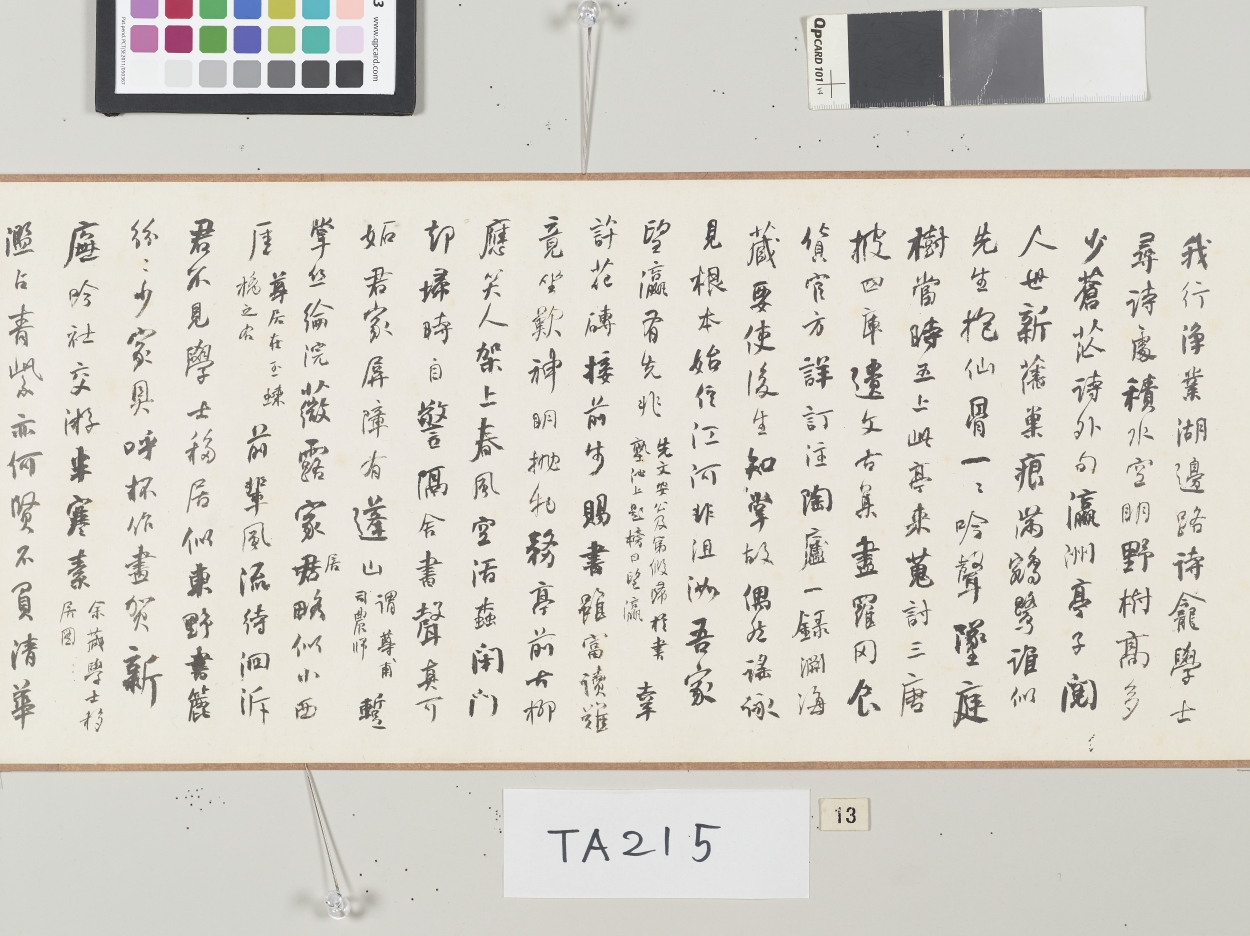 我行淨業湖邊路詩龕學士
尋詩處積水空明野樹高多
少蒼茫詩外句瀛洲亭子閱
人世新舊巢痕滿鸂鷘誰似
先生抱仙骨一〻吟聲墜庭
樹當時五上此亭來蒐討三唐
披四庫遺文古集盡羅网食
貨官方詳訂注陶廬一錄瀾海
藏要使後生知掌故偶然謠詠
見根本始信江河非沮洳吾家
望瀛有先非
先文安公及第假歸於書
塾池上題榜曰望瀛
幸
許花磚接前步賜書雖富讀難
竟坐歎神明拋牝務亭前古柳
應笑人架上春風空活蠹閉門
却掃時自警隔舍書聲真可
妬君家屏障有蓬山
謂尊甫
司農師
蹔
掌絲綸浣薇露家君居略似小西
厓
尊居在玉蝀
橋之右
前輩風流待洄泝
君不見學士移居似東野書簏
紛〻少家具呼杯作畫賀新
廬吟社交游半寒素
余藏學士移
居圖
濫占青紫亦何賢不負清華
TA215
13
QpCARD 101 v4
www.qpcard.com